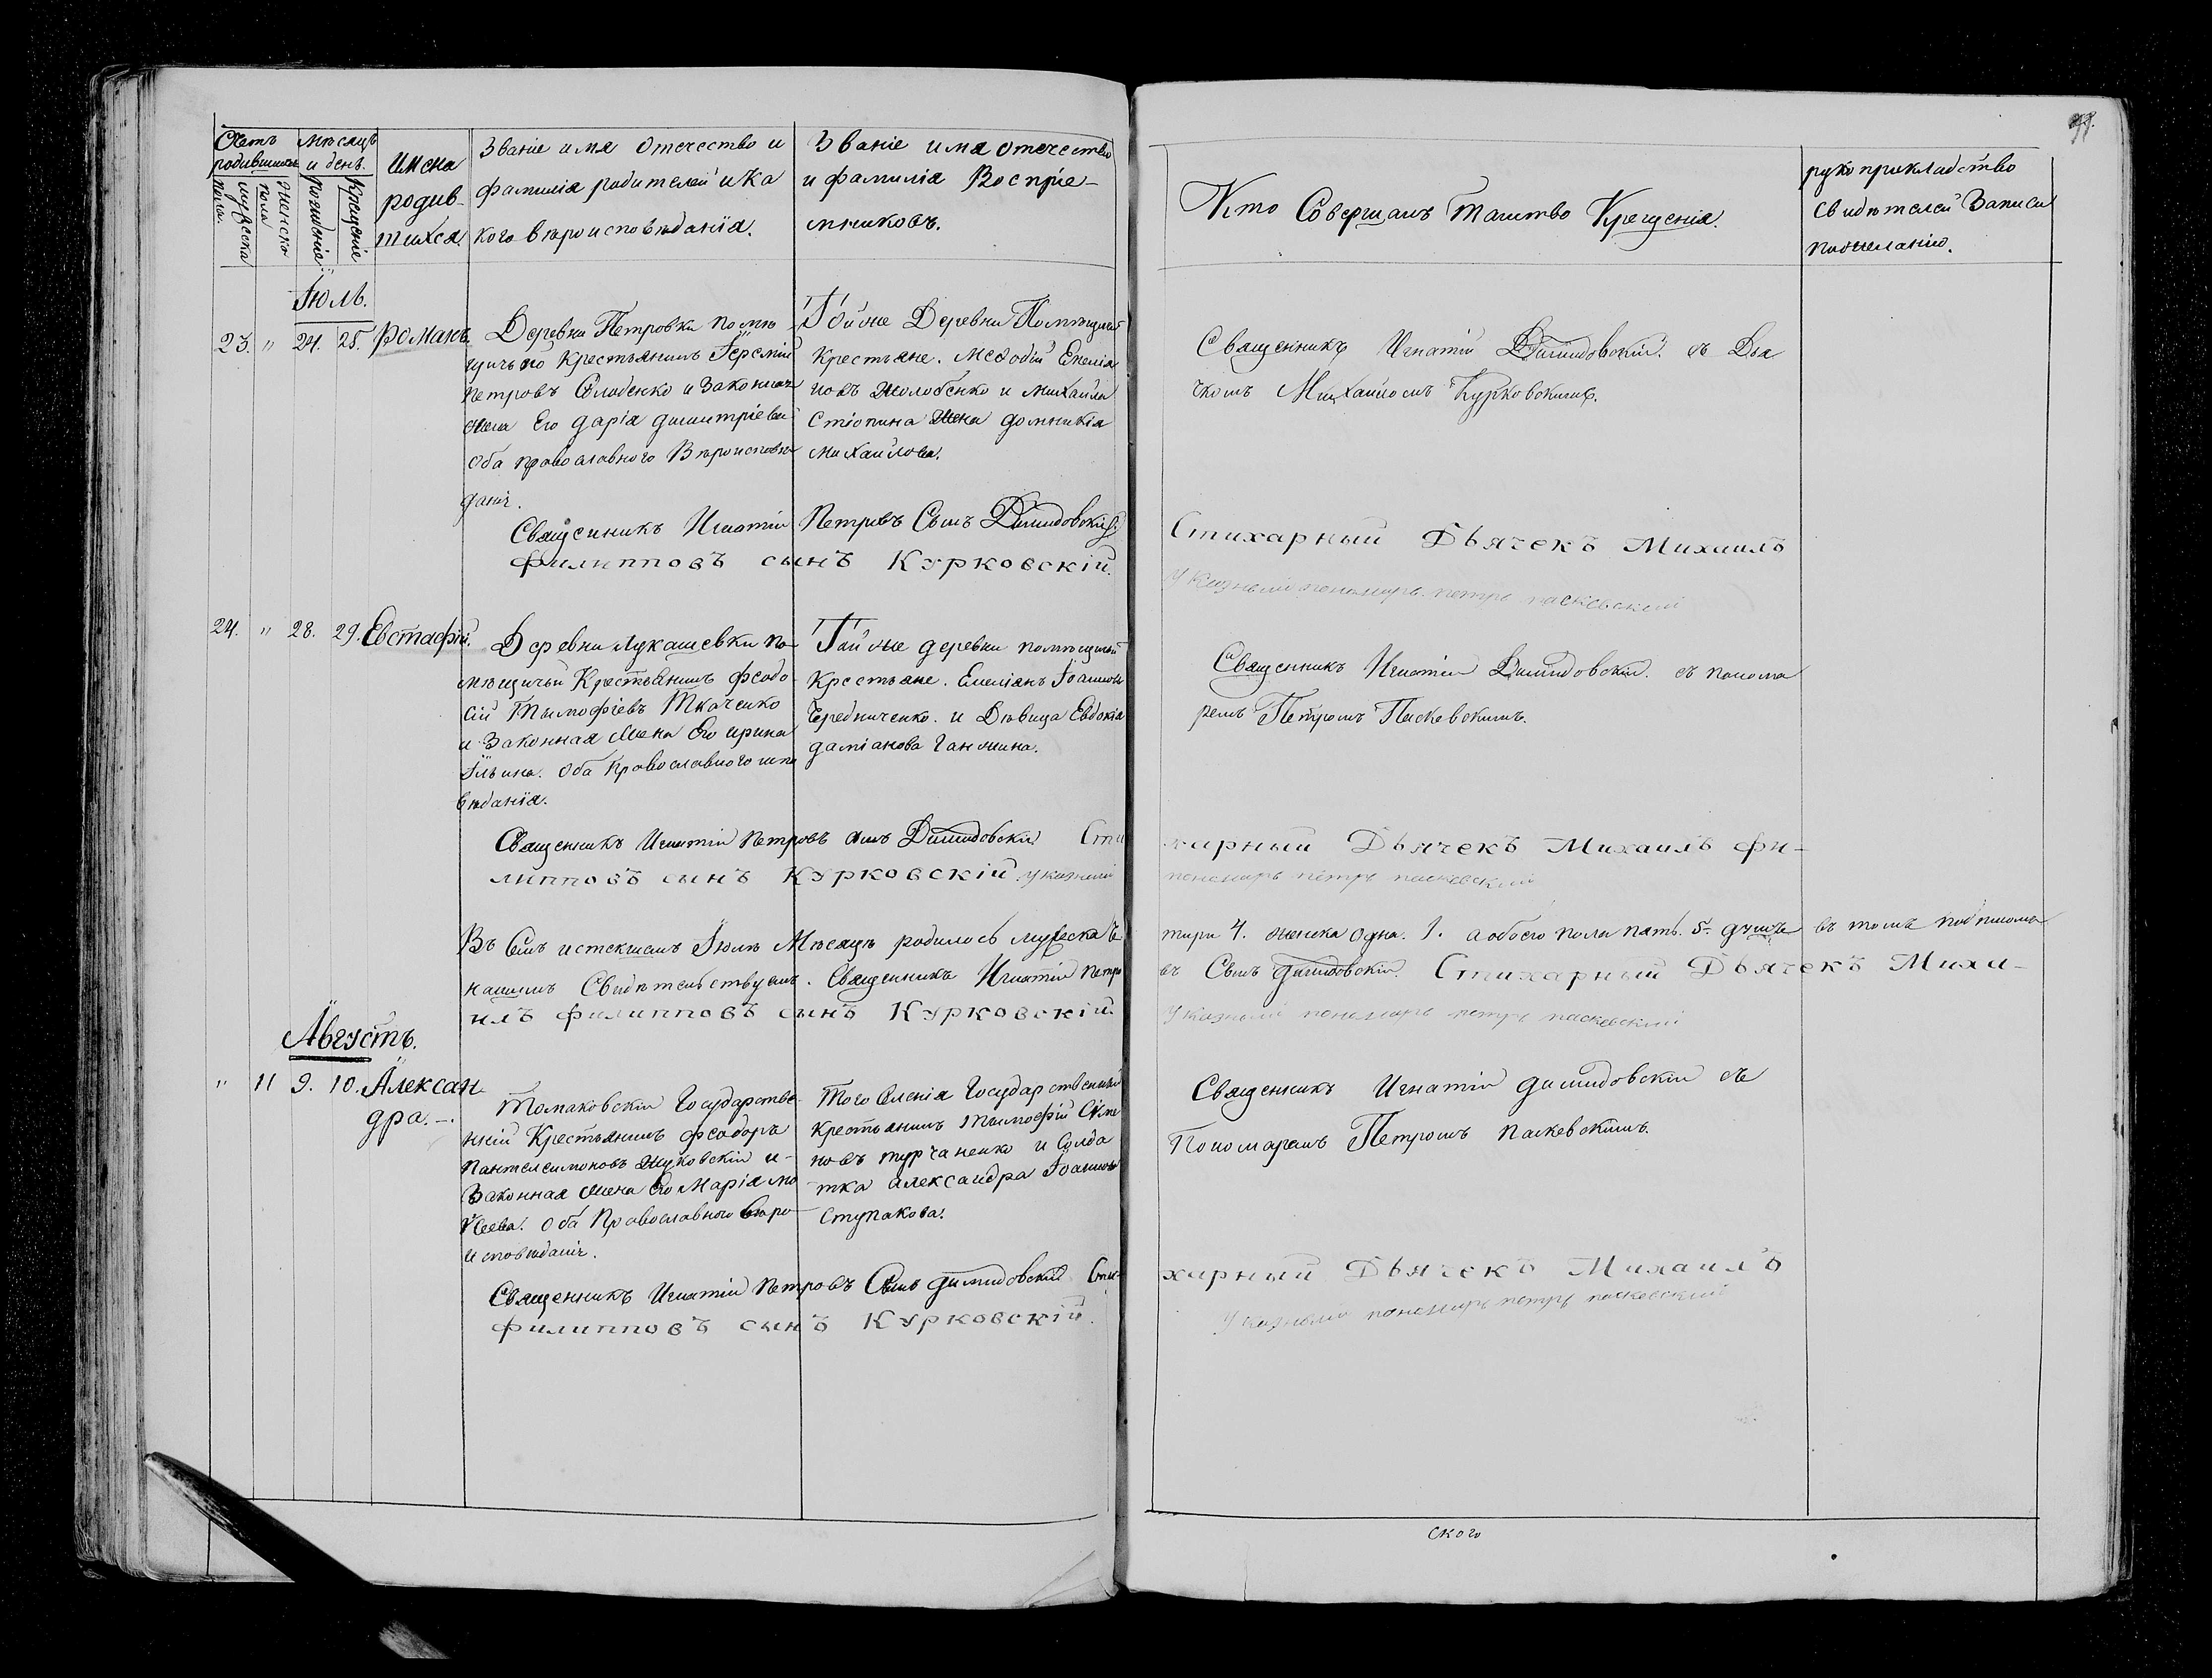 Счетъ родившихся
мужеска пола
женска пола
Мѣсяцъ и день.
рожденіе
крещеніе
имена родив-
шихся
Званіе имя отечество и
фамилія родителей и ка
кого вѣроисповѣданія.
Званіе имя отечество
и фамилія Воспріе-
мниковъ.
Кто Совершалъ Таинство Крещенія.
рукоприкладство
свидѣтелей Записи
по желанію.
Іюль.
23. " 24. 25. романъ.
Деревни Петровки помѣ
щичьей Крестьянинъ Іеремій
Петровъ Солоденко и Законная
жена Его дарія димитріева
Оба православного Вѣроисповѣ
данія.
Той же Деревни Помѣщичьи
Крестьяне. Меѳодій Емелія
новъ Жолобенко и Михаила
Стіопина жена домникія
михаилова.
Священникъ Игнатій Димидовскій. съ Дья
чкомъ Михаиломъ Курковскимъ.
Священникъ Игнатій Петровъ Сынъ Димидовскій. Стихарный Дьячекъ Михаилъ
филипповъ сынъ Курковскій. Указный пономарь петръ паскевский
24. " 28. 29. Евстафій.
Деревни Лукашевки по-
мѣщичьи Крестьянинъ феодо
сій Тимофіевъ Ткаченко
и Законная жена Его ирина
Ильина. Оба Православного испо
вѣданія.
Той же деревни помѣщичьи
Крестьяне. Емеліанъ Іоанновъ
Чередниченко. и Дѣвица Евдокія
даміанова Ганжина.
Священникъ Игнатій Димидовскій. съ понома
ремъ Петромъ Паскевскимъ.
Священникъ Игнатій Петровъ сынъ Димидовскій Стихарный Дьячекъ Михаилъ фи-
липповъ сынъ Курковскій. указный пономарь петръ паскевский
Въ Семъ истекшемъ Іюлѣ Мѣсяцѣ родилось мужеска че тыри 4. женска одна. 1. а обоего пола пять. 5. душъ въ томъ подписомъ
нашимъ Свидѣтельствуемъ. Священникъ Игнатій Петро въ Сынъ димидовскій. Стихарный Дьячекъ Миха-
илъ филипповъ сынъ Курковскій. Указный пономарь петръ паскевский
Августъ.
" 11 9. 10. Алексан
дра.
Томаковскій Государстве-
нній Крестьянинъ феодоръ
Пантелеимоновъ Жуковскій и-
Законная жена Его Марія мо
исеева. Оба Православного Вѣро
исповѣданія.
Того Селенія Государственный
Крестьянинъ Тимофій Симе
новъ турчаненко и Солда
тка александра Іоаннова
Ступакова.
Священникъ Игнатій димидовскій съ
Пономаремъ Петромъ паскевскимъ.
Священникъ Игнатій Петровъ Сынъ димидовскій Стихарный Дьячекъ Михаилъ
филипповъ сынъ Курковскій. Указный пономарь петръ паскевский
ского